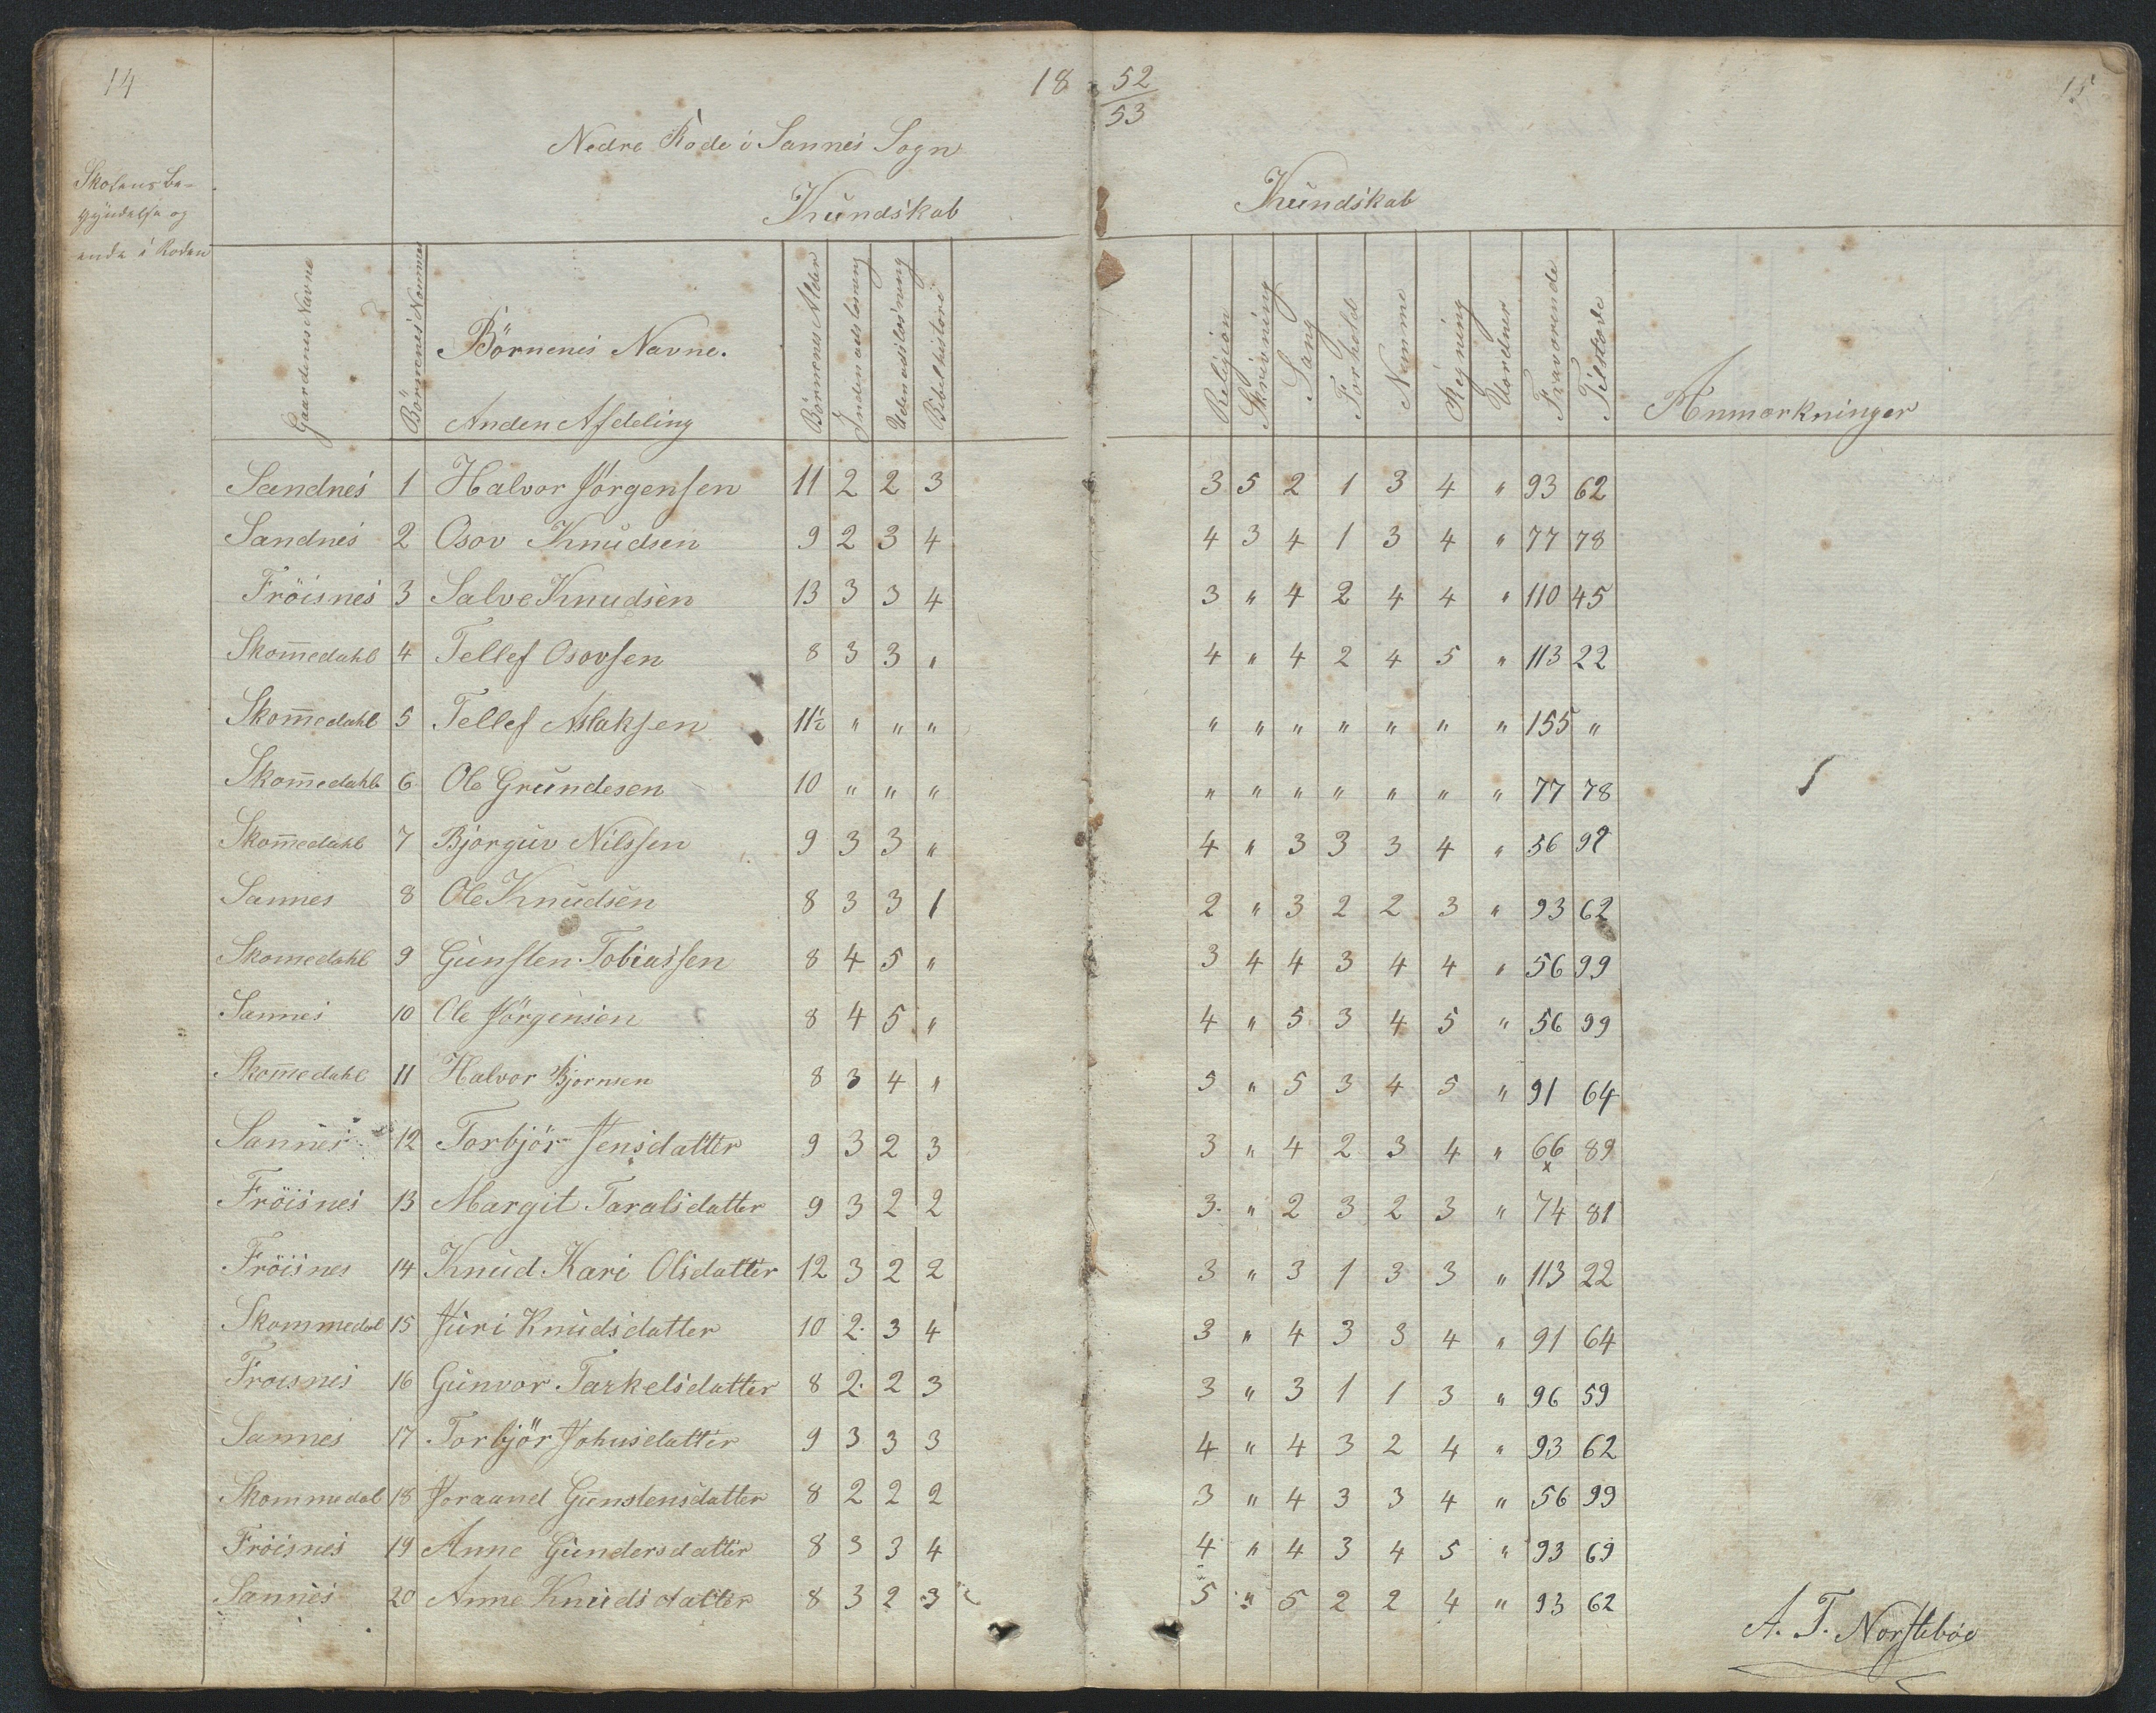 14
18 52/53
15
Nedre Rode i Sannes Sogn
Skolens Be-
gyndelse og
ende i Roden
Kundskab
Kundskab
Gaardenes Navne
Börnenes Nommer
Börnenes Navne.
Anden Afdeling
Börnenes Alder
Indenadslæsning
Udenadslæsning
Bibelhistorie
Religion
Skrivning
Sang
Forhold
Nemme
Regning
Uordner
Fraværende
Tilstæde
Anmærkninger
Sandnes 1 Halvor Jörgensen 11 2 2 3 3 5 2 1 3 4 " 93 62
Sandnes 2 Osov Knudsen 9 2 3 4 4 3 4 1 3 4 " 77 78
Fröisnes 3 Salve Knudsen 13 3 3 4 3 " 4 2 4 4 " 110 45
Skom̅edahl 4 Tellef Osovsen 8 3 3 " 4 " 4 2 4 5 " 113 22
Skom̅edahl 5 Tellef Aslaksen 11½ " " " " " " " " " " 155 "
Skom̅edahl 6 Ole Grundesen 10 " " " " " " " " " " 77 78
Skom̅edahl 7 Bjorguv Nilssen 9 3 3 " 4 " 3 3 3 4 " 56 99
Sannes 8 Ole Knudsen 8 3 3 1 2 " 3 2 2 3 " 93 62
Skomedahl 9 Gunsten Tobiassen 8 4 5 " 3 4 4 3 4 4 " 56 99
Sannes 10 Ole Jörgensen 8 4 5 " 4 " 5 3 4 5 " 56 99
Skom̅edahl 11 Halvor Bjornsen 8 3 4 " 5 " 5 3 4 5 " 91 64
Sannes 12 Torbjör Jensdatter 9 3 2 3 3 " 4 2 3 4 " 66 89
x
Fröisnes 13 Margit Taralsdatter 9 3 2 2 3. " 2 3 2 3 " 74 81
Fröisnes 14 Knud Kari Olsdatter 12 3 2 2 3 " 3 1 3 3 " 113 22
Skommedal 15 Juri Knudsdatter 10 2. 3 4 3 " 4 3 3 4 " 91 64
Froisnes 16 Gunvor Tarkelsdatter 8 2. 2 3 3 " 3 1 1 3 " 96 59
Sannes 17 Torbjör Johnsdatter 9 3 3 3 4 " 4 3 2 4 " 93 62
Skommedal 18 Joraand Gunstensdatter 8 2 2 2 3 " 4 3 3 4 " 56 99
Fröisnes 19 Anne Gundersdatter 8 3 3 4 4 " 4 3 4 5 " 93 69
Sannes 20 Anne Knudsdatter 8 3 2 3 5 " 5 2 2 4 " 93 62
A. T. Norstebøe